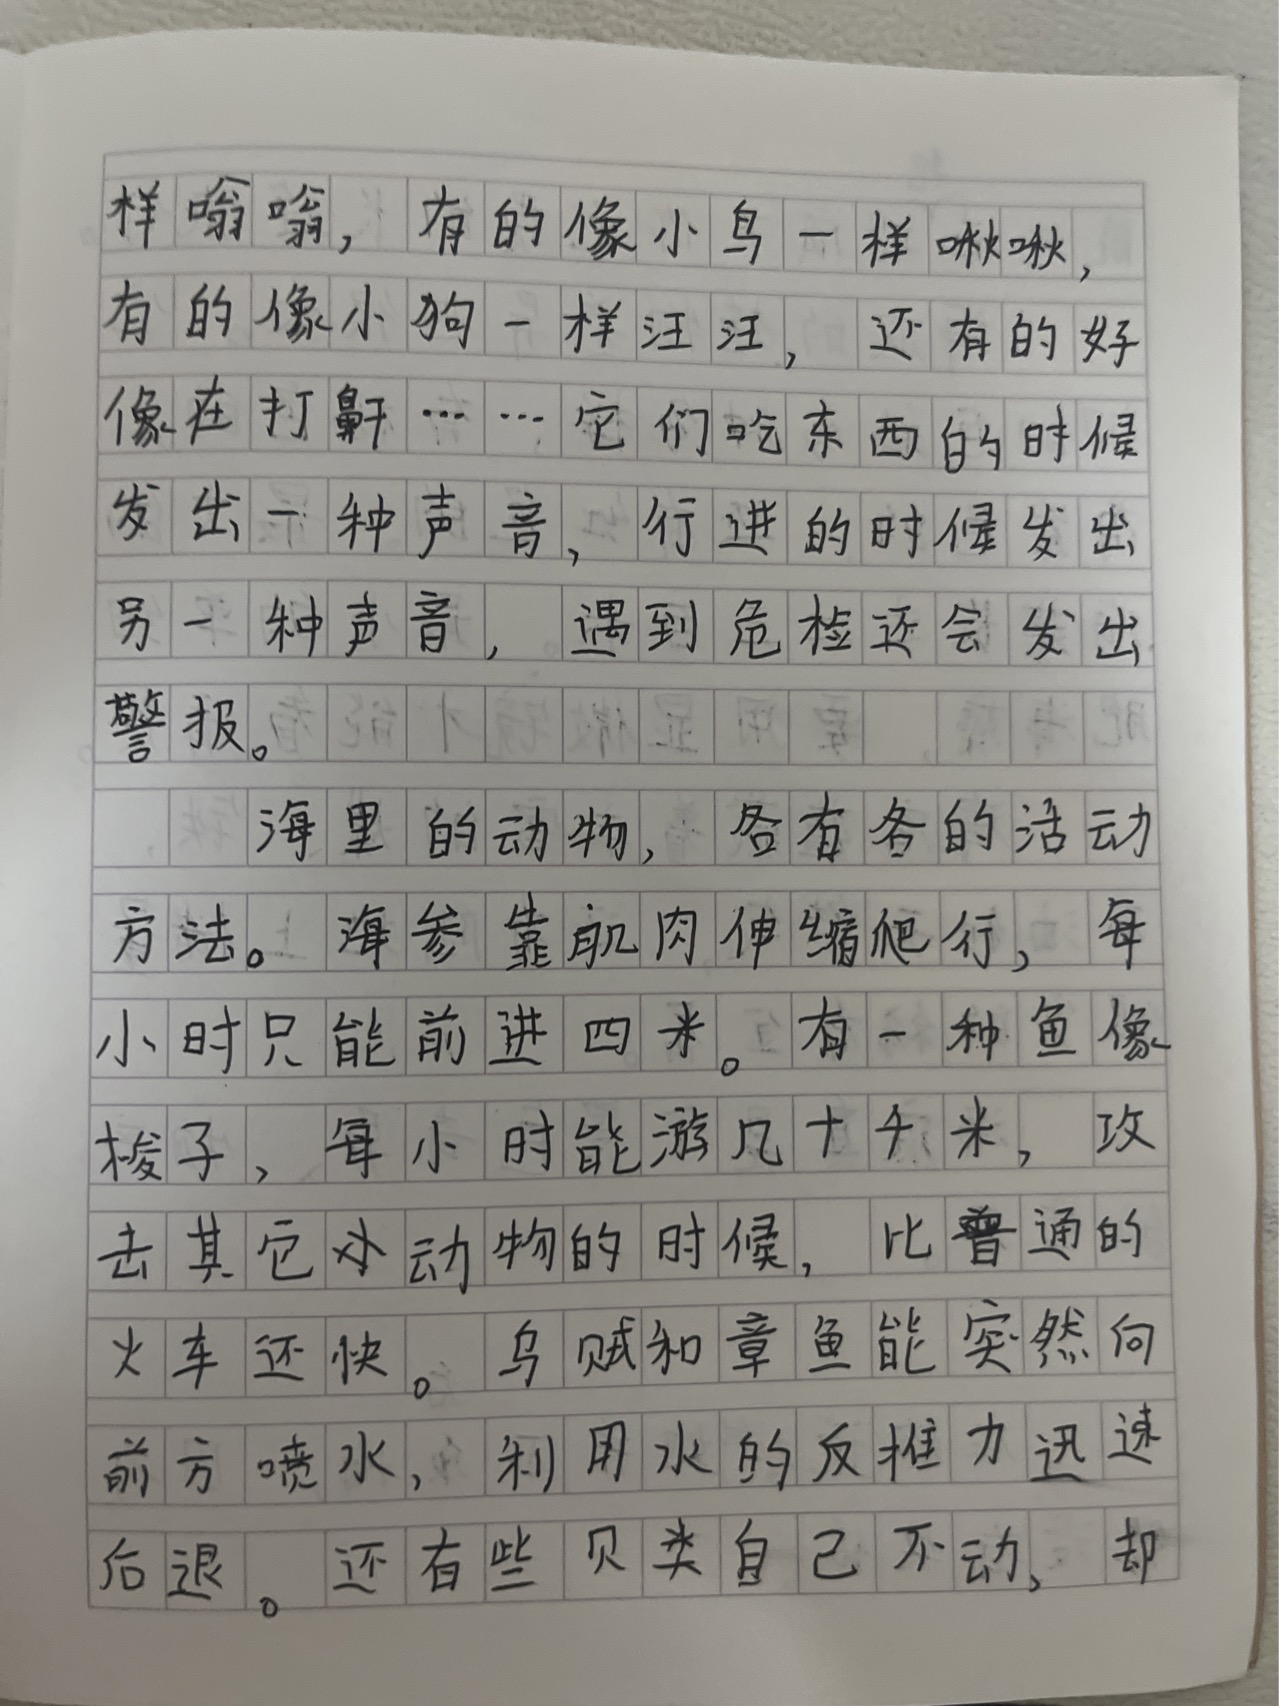 样嗡嗡，有的像小鸟一样啾啾，
有的像小狗一样汪汪，还有的好
像在打鼾……它们吃东西的时候
发出一种声音，行进的时候发出
另一种声音，遇到危检还会发出
警报。
海里的动物，各有各的活动
方法。海参靠肌肉伸缩爬行，每
小时只能前进四米。有一种鱼像
梭子，每小时能游几十千米，攻
击其它小动物的时候，比普通的
火车还快。乌贼和章鱼能突然向
前方喷水，利用水的反推力迅速
后退。还有些贝类自己不动，却